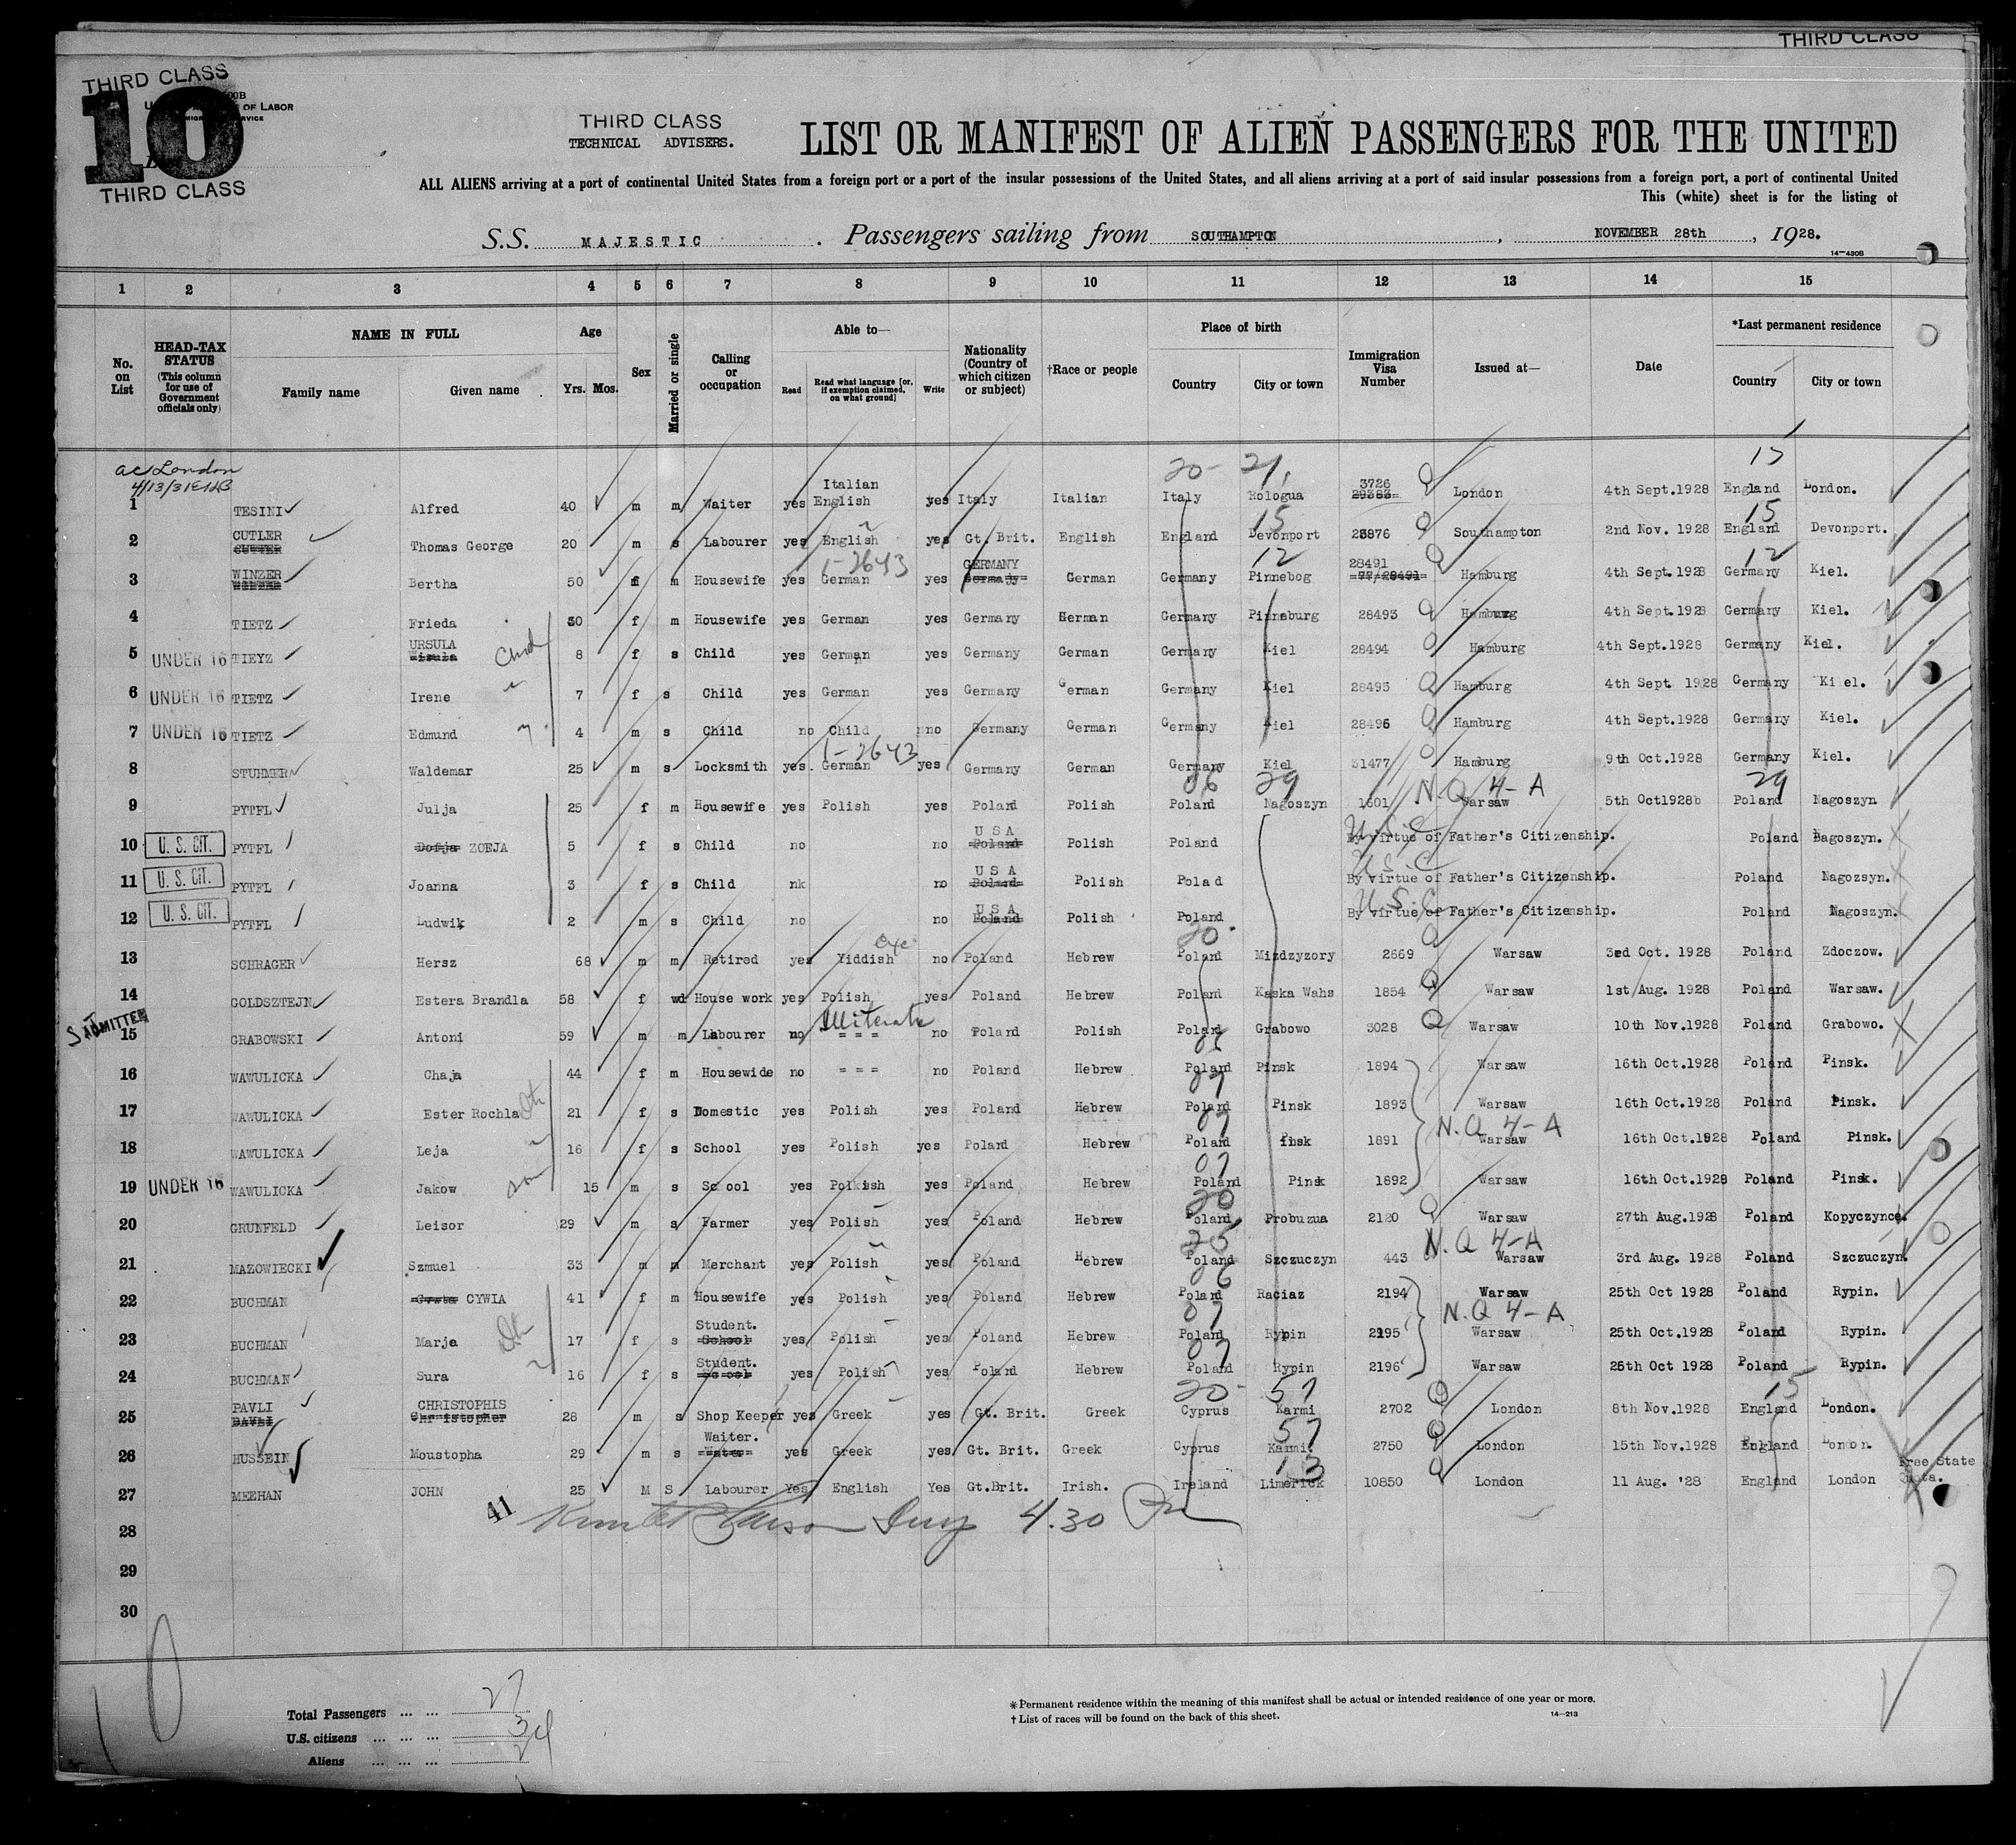 THIRD CLASS
THIRD CLASS
10
OF LABOR
THIRD CLASS
THIRD CLASS
TECHNICAL ADVISERS.
LIST OR MANIFEST OF ALIEN PASSENGERS FOR THE UNITED
ALL ALIENS arriving at a port of continental United States from a foreign port or a port of the insular possessions of the United States, and all aliens arriving at a port of said insular possessions from a foreign port, a port of continental United
This (white) sheet is for the listing of
S.S. MAJESTIC . Passengers sailing from SOUTHAMPTON , NOVEMBER 28th , 1928.
14—430B
1 2 3 4 5 6 7 8 9 10 11 12 13 14 15
No. on List
HEAD-TAX STATUS (This column for use of Government officials only)
NAME IN FULL
Family name Given name
Age
Yrs. Mos.
Sex
Married or single
Calling or occupation
Able to—
Read Read what language [or, if exemption claimed, on what ground] Write
Nationality (Country of which citizen or subject)
†Race or people
Place of birth
Country City or town
Immigration Visa Number
Issued at—
Date
*Last permanent residence
Country City or town
ac London
4/13/31
20- 21, 15
1 TESINI Alfred 40 m m Waiter yes Italian English yes Italy Italian Italy Rologua 3726 29383 London 4th Sept.1928 England London.
15 15
2 CUTLER Thomas George 20 m s Labourer yes English yes Gt. Brit. English England Devonport 23876 Southampton 2nd Nov. 1928 England Devonport.
1-2643 12 12
3 WINZER Bertha 50 f m Housewife yes German yes GERMANY Germany German Germany Pinnebog 28491 77/28491 Hamburg 4th Sept.1928 Germany Kiel.
4 TIETZ Frieda 30 f m Housewife yes German yes Germany German Germany Pinneburg 28493 Hamburg 4th Sept.1928 Germany Kiel.
5 UNDER 16 TIEYZ URSULA Child 8 f s Child yes German yes Germany German Germany Kiel 28494 Hamburg 4th Sept.1928 Germany Kiel.
6 UNDER 16 TIETZ Irene 7 f s Child yes German yes Germany German Germany Kiel 28495 Hamburg 4th Sept 1928 Germany Kiel.
7 UNDER 16 TIETZ Edmund 4 m s Child no Child no Germany German Germany Kiel 28496 Hamburg 4th Sept.1928 Germany Kiel.
1-2643
8 STUHMER Waldemar 25 m s Locksmith yes. German yes Germany German Germany Kiel 31477 Hamburg 9th Oct.1928 Germany Kiel.
06 29 N.Q 4-A 29
9 PYTFL Julja 25 f m Housewife yes Polish yes Poland Polish Poland Nagoszyn 1601 Warsaw 5th Oct1928b Poland Nagoszyn
10 U. S. CIT. PYTFL Dofja ZOFJA 5 f s Child no no U S A Poland Polish Poland U.S.C By virtue of Father's Citizenship. Poland Bagoszyn.
11 U. S. CIT. PYTFL Joanna 3 f s Child nk no U S A Poland Polish Polad U.S.C By virtue of Father's Citizenship. Poland Nagozsyn.
12 U. S. CIT. PYTFL Ludwik 2 m s Child no no U S A Poland Polish Poland U.S.C By virtue of Father's Citizenship. Poland Nagoszyn.
20
13 SCHRAGER Hersz 68 m m Retired yes Yiddish no Poland Hebrew Poland Mizdzyzory 2669 Warsaw 3rd Oct. 1928 Poland Zdoczow.
14 GOLDSZTEJN Estera Brandla 58 f wd House work yes Polish yes Poland Hebrew Poland Kaska Wahs 1854 Warsaw 1st Aug. 1928 Poland Warsaw.
ADMITTED Illiterate
15 GRABOWSKI Antoni 59 m m Labourer no = = = no Poland Polish Poland Grabowo 3028 Warsaw 10th Nov.1928 Poland Grabowo.
06
16 WAWULICKA Chaja 44 f m Housewide no = = = no Poland Hebrew Poland Pinsk 1894 Warsaw 16th Oct.1928 Poland Pinsk.
07
17 WAWULICKA Ester Rochla 21 f s Domestic yes Polish yes Poland Hebrew Poland Pinsk 1893 Warsaw 16th Oct.1928 Poland Pinsk.
07 N.Q 4-A
18 WAWULICKA Leja 16 f s School yes Polish yes Poland Hebrew Poland Pinsk 1891 Warsaw 16th Oct.1928 Poland Pinsk.
07
19 UNDER 16 WAWULICKA Jakow son 15 m s Sc ool yes Polkish yes Poland Hebrew Poland Pinsk 1892 Warsaw 16th Oct.1928 Poland Pinsk.
20
20 GRUNFELD Leisor 29 m s Farmer yes Polish yes Poland Hebrew Poland Probuzua 2120 Warsaw 27th Aug.1928 Poland Kopyczynce.
25 N.Q 4-A
21 MAZOWIECKI Szmuel 33 m m Merchant yes Polish yes Poland Hebrew Poland Szczuczyn 443 Warsaw 3rd Aug. 1928 Poland Szczuczyn.
06
22 BUCHMAN CYWIA 41 f m Housewife yes Polish yes Poland Hebrew Poland Raciaz 2194 Warsaw 25th Oct 1928 Poland Rypin.
07 N.Q 4-A
23 BUCHMAN Marja 17 f s Student. School yes Polish yes Poland Hebrew Poland Rypin 2195 Warsaw 25th Oct.1928 Poland Rypin.
07
24 BUCHMAN Sura 16 f s Student. School yes Polish yes Poland Hebrew Poland Rypin 2196 Warsaw 25th Oct 1928 Poland Rypin.
20- 57 15
25 PAVLI CHRISTOPHIS Christopher 28 m s Shop Keeper yes Greek yes Gt. Brit. Greek Cyprus Karmi 2702 London 8th Nov.1928 England London.
57
26 HUSSEIN Moustopha 29 m s Waiter. Water yes Greek yes Gt. Brit. Greek Cyprus Karmi 2750 London 15th Nov.1928 England London.
13 Free State
27 MEEHAN JOHN 25 M S Labourer Yes English Yes Gt.Brit. Irish. Ireland Limerick 10850 London 11 Aug. '28 England London
41 4.30 Pm
28
29
30
Total Passengers ... ... 27
U.S. citizens ... ... ... 3
Aliens ... ... ... 24
*Permanent residence within the meaning of this manifest shall be actual or intended residence of one year or more.
†List of races will be found on the back of this sheet.
14—213